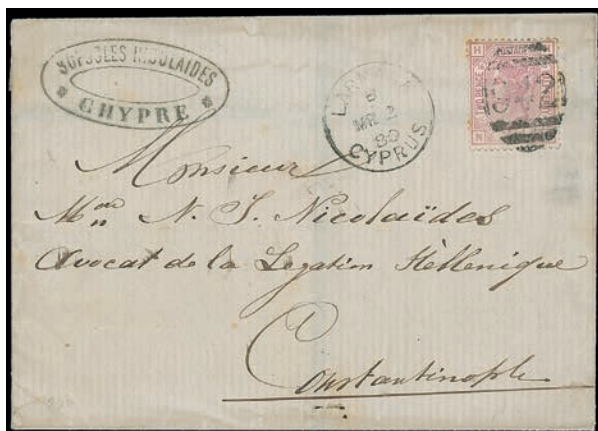 SOPHOCLES NICOLAIDES
CHYPRE
LARNACA
MR 2
80
CYPRUS
H
POSTAGE
Monsieur
N. J. Nicolaïdes
Avocat de la Legation Hèllenique
Constantinople